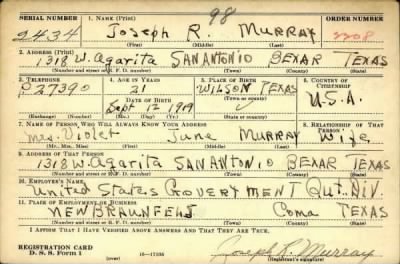 98
SERIAL NUMBER 1. NAME (Print) ORDER NUMBER
2434 Joseph R. MURRAY 2208
(First) (Middle) (Last)
2. ADDRESS (Print)
1318 W. Agarita SAN ANTONIO BEXAR TEXAS
(Number and street or R. F. D. number) (Town) (County) (State)
3. TELEPHONE 4. AGE IN YEARS 5. PLACE OF BIRTH 6. COUNTRY OF CITIZENSHIP
P 27390 21 WILSON TEXAS
DATE OF BIRTH (Town or county)
Sept 12 1919 U.S.A.
(Exchange) (Number) (Mo.) (Day) (Yr.) (State or country)
7. NAME OF PERSON WHO WILL ALWAYS KNOW YOUR ADDRESS 8. RELATIONSHIP OF THAT PERSON
Mrs. Violet June MURRAY Wife
(Mr., Mrs., Miss) (First) (Middle) (Last)
9. ADDRESS OF THAT PERSON
1318 W. Agarita SAN ANTONIO BEXAR TEXAS
(Number and street or R. F. D. number) (Town) (County) (State)
10. EMPLOYER'S NAME
United States GOVERTMENT Qut. Div.
11. PLACE OF EMPLOYMENT OR BUSINESS
NEW BRAUNFELS Coma TEXAS
(Number and street or R. F. D. number) (Town) (County) (State)
I AFFIRM THAT I HAVE VERIFIED ABOVE ANSWERS AND THAT THEY ARE TRUE.
REGISTRATION CARD
D. S. S. Form 1 (over) 16—17105 Joseph R. Murray
(Registrant's signature)